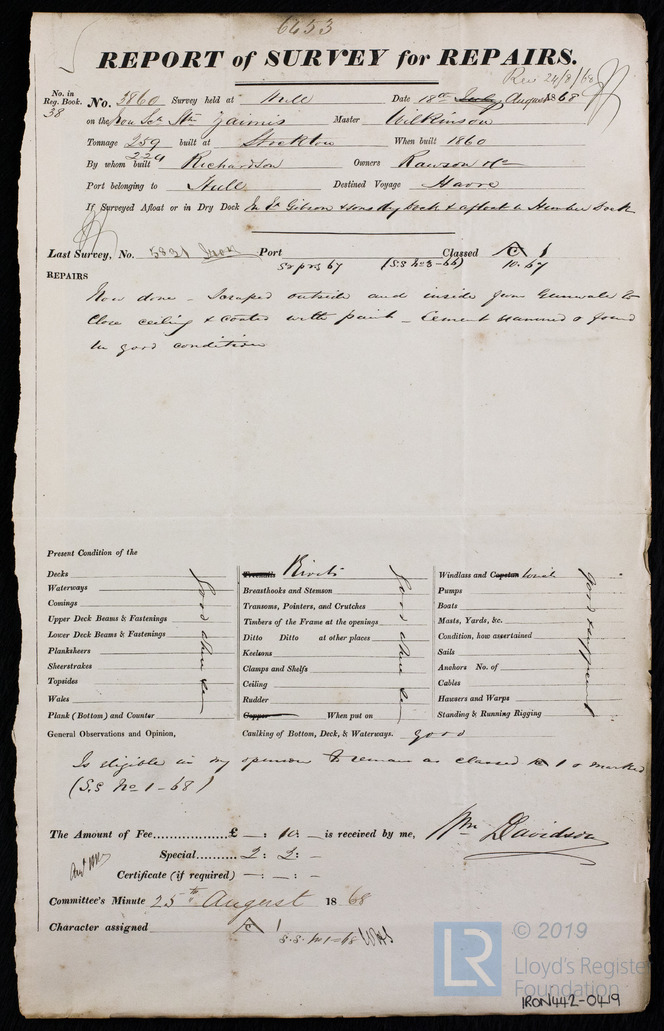 6653
REPORT of SURVEY for REPAIRS.
Rec 24/8/68
No. in Reg. Book. 38
No. 3860 Survey held at Hull Date 18th July August 1868
on the Iron Sc Str Zaimis Master Wilkinson
Tonnage 259 built at Stockton When built 1860
229
By whom built Richardson Owners Rawson &c
Port belonging to Hull Destined Voyage Havre
If Surveyed Afloat or in Dry Dock In Gibson & sons dry Dock & afloat in Humber Dock
Last Survey, No. 5821 Iron Port Classed A 1
67 (S.S No 3-66) 10.67
REPAIRS
Now done - Scraped outside and inside from Gunwale to
close ceiling & coated with paint - Cement examined & found
in good condition
Present Condition of the
Decks
Waterways
Comings
Upper Deck Beams & Fastenings
Lower Deck Beams & Fastenings
Planksheers
Sheerstrakes
Topsides
Wales
Plank (Bottom) and Counter
Good where seen
Treenails Rivets
Breasthooks and Stemson
Transoms, Pointers, and Crutches
Timbers of the Frame at the openings
Ditto Ditto at other places
Keelsons
Clamps and Shelfs
Ceiling
Rudder
Copper When put on
Good where seen
Windlass and Capstan winch
Pumps
Boats
Masts, Yards, &c.
Condition, how ascertained
Sails
Anchors No. of
Cables
Hausers and Warps
Standing & Running Rigging
Good & sufficient
General Observations and Opinion, Caulking of Bottom, Deck, & Waterways. good
Is eligible in my opinion to remain as classed A 1 & marked
(S.S No 1-68)
The Amount of Fee £ —: 10: — is received by me, Wm Davidson
Special 2: 2: —
Certificate (if required) —: —: —
Committee's Minute 25th August 1868
Character assigned A 1
S.S. No 1-68
© 2019
LR
Lloyd's Register
Foundation
IRON442-0419